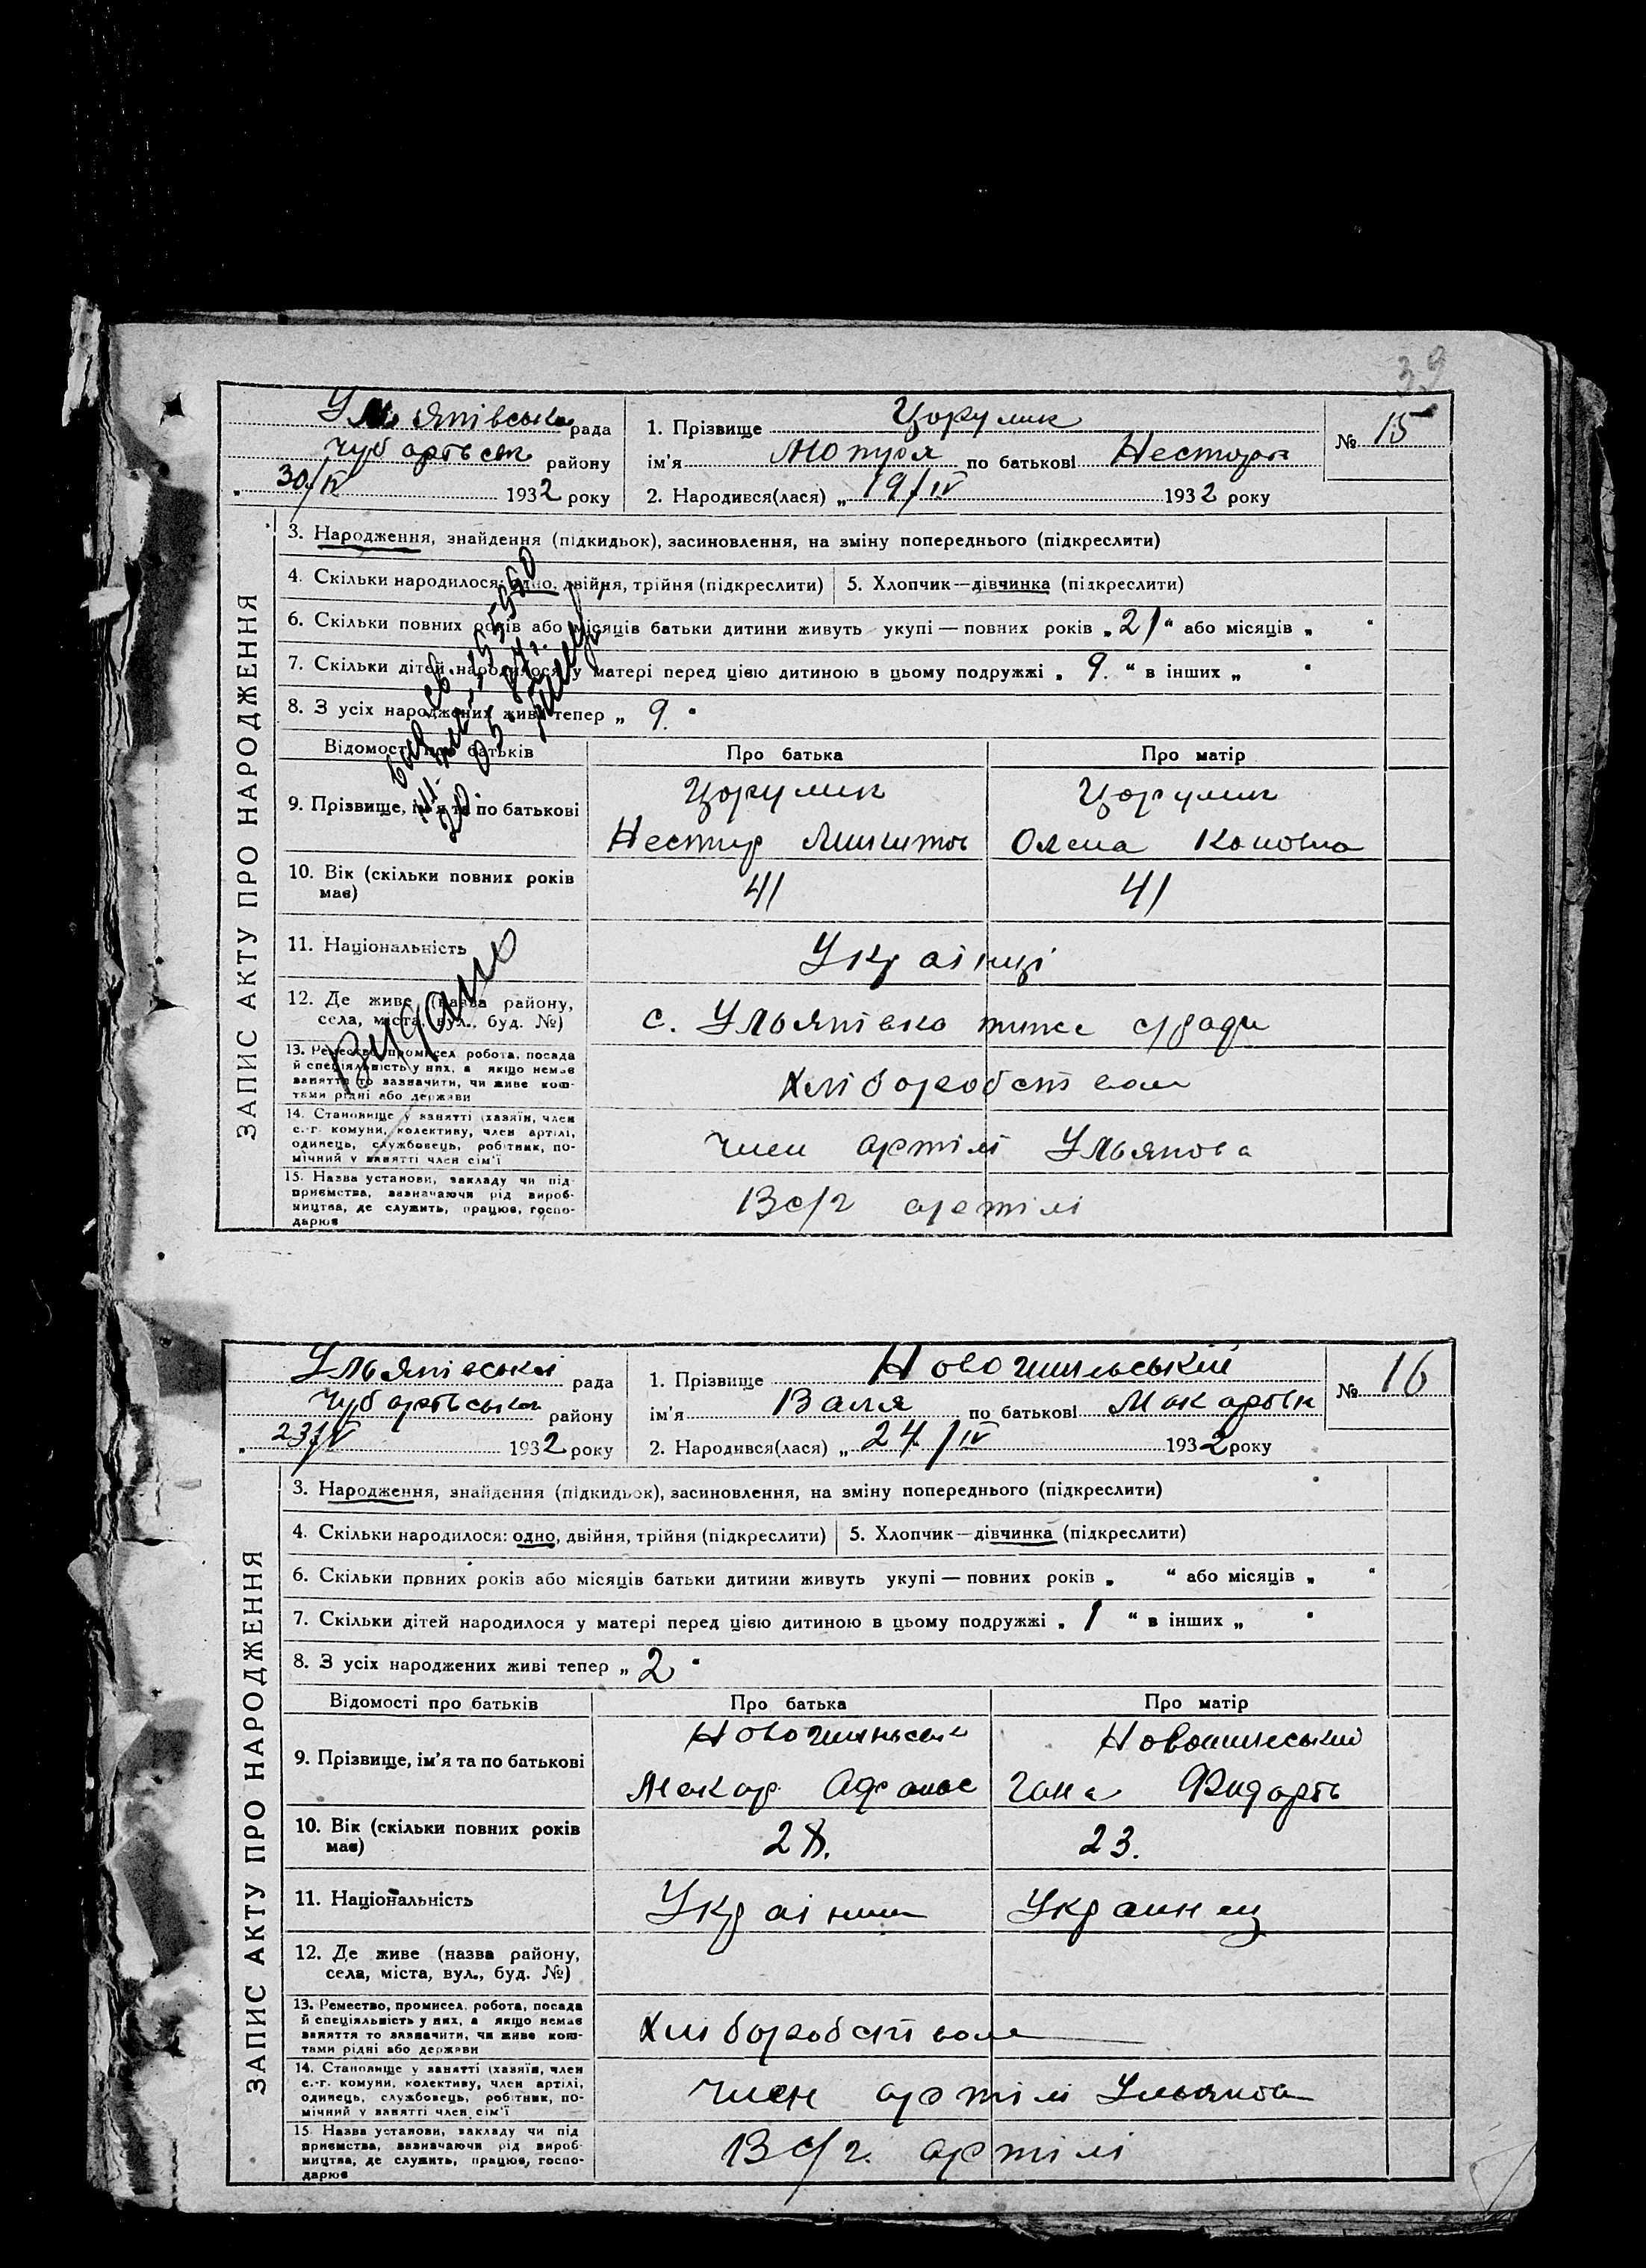 39
Ульянівська рада
Чубарівськ району
30/IV 1932 року
1. Прізвище Цорулик
ім'я по батькові Нестор
2. Народився(лася) „ 19/IV 1932 року
№ 15
ЗАПИС АКТУ ПРО НАРОДЖЕННЯ
3. Народження, знайдення (підкидьок), засиновлення, на зміну попереднього (підкреслити)
4. Скільки народилося: одно, двійня, трійня (підкреслити) 5. Хлопчик—дівчинка (підкреслити)
6. Скільки повних років або місяців батьки дитини живуть укупі — повних років „ 21 “ або місяців „ “
7. Скільки дітей народилося у матері перед цією дитиною в цьому подружжі „ 9. “ в інших „ “
8. З усіх народжених живі тепер „ 9 “
Відомості про батьків Про батька Про матір
9. Прізвище, ім'я та по батькові
Цорулик Цорулик
Нестир Микитов Олена
10. Вік (скільки повних років має) 41 41
11. Національність Українці
12. Де живе (назва району, села, міста, вул., буд. №) с. Ульянівка тиже с/ради
13. Ремество, промисел, робота, посада й спеціяльність у них, а якщо немає заняття то зазначити, чи живе коштами рідні або держави
Хліборобством
14. Становище у занятті (хазяїн, член с.-г. комуни, колективу, член артілі, одинець, службовець, робітник, помічний у занятті член сім'ї
член артілі Ульянова
15. Назва установи, закладу чи підприємства, зазначаючи рід виробництва, де служить, працює, господарює
В с/г артілі
Видано
Ульянівська рада
Чубарівська району
23/V 1932 року
1. Прізвище Новожильській
ім'я Валя по батькові Макарівн
2. Народився(лася) „ 24/IV 1932 року
№ 16
ЗАПИС АКТУ ПРО НАРОДЖЕННЯ
3. Народження, знайдення (підкидьок), засиновлення, на зміну попереднього (підкреслити)
4. Скільки народилося: одно, двійня, трійня (підкреслити) 5. Хлопчик—дівчинка (підкреслити)
6. Скільки повних років або місяців батьки дитини живуть укупі — повних років „ “ або місяців „ “
7. Скільки дітей народилося у матері перед цією дитиною в цьому подружжі „ 1 “ в інших „ “
8. З усіх народжених живі тепер „ 2 “
Відомості про батьків Про батька Про матір
9. Прізвище, ім'я та по батькові
Макар Афанас Гана
10. Вік (скільки повних років має) 28. 23.
11. Національність Українець Украинец
12. Де живе (назва району, села, міста, вул., буд. №)
13. Ремество, промисел, робота, посада й спеціяльність у них, а якщо немає заняття то зазначити, чи живе коштами рідні або держави
Хліборобством
14. Становище у занятті (хазяїн, член с.-г. комуни, колективу, член артілі, одинець, службовець, робітник, помічний у занятті член сім'ї
член артілі Ульянова
15. Назва установи, закладу чи підприємства, зазначаючи рід виробництва, де служить, працює, господарює
В с/г. артілі